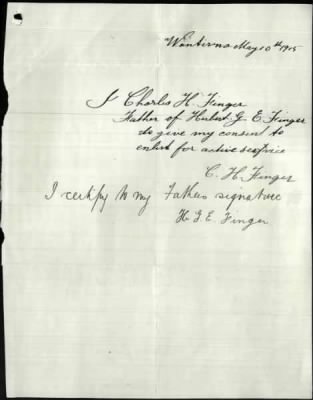 Wantirna May 10th 1915
I Charles H. Finger
Father of Hubert G. E. Finger
do give my consent to
enlist for active service
C. H. Finger
I certify to my Fathers signature
H. G. E. Finger